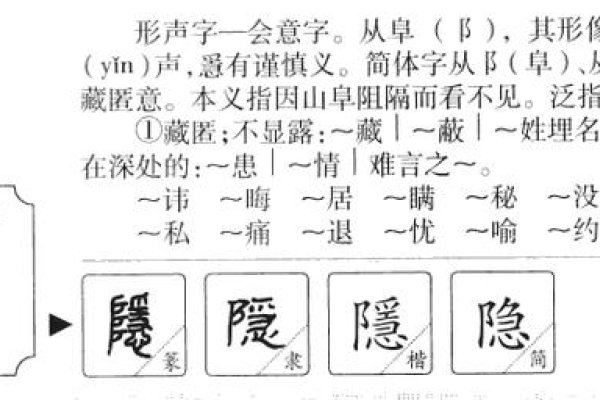 形声字—会意字。从阜（阝），其形像
(yǐn)声，㥯有谨慎义。简体字从阝(阜)、从
藏匿意。本义指因山阜阻隔而看不见。泛指
①藏匿；不显露：～藏｜～蔽｜～姓埋名
在深处的：～患｜～情｜难言之～。
～讳 ～晦 ～居 ～瞒 ～秘 ～没
～私 ～痛 ～退 ～忧 ～喻 ～约
隱 篆 隱 隶 隱 楷 隐 简